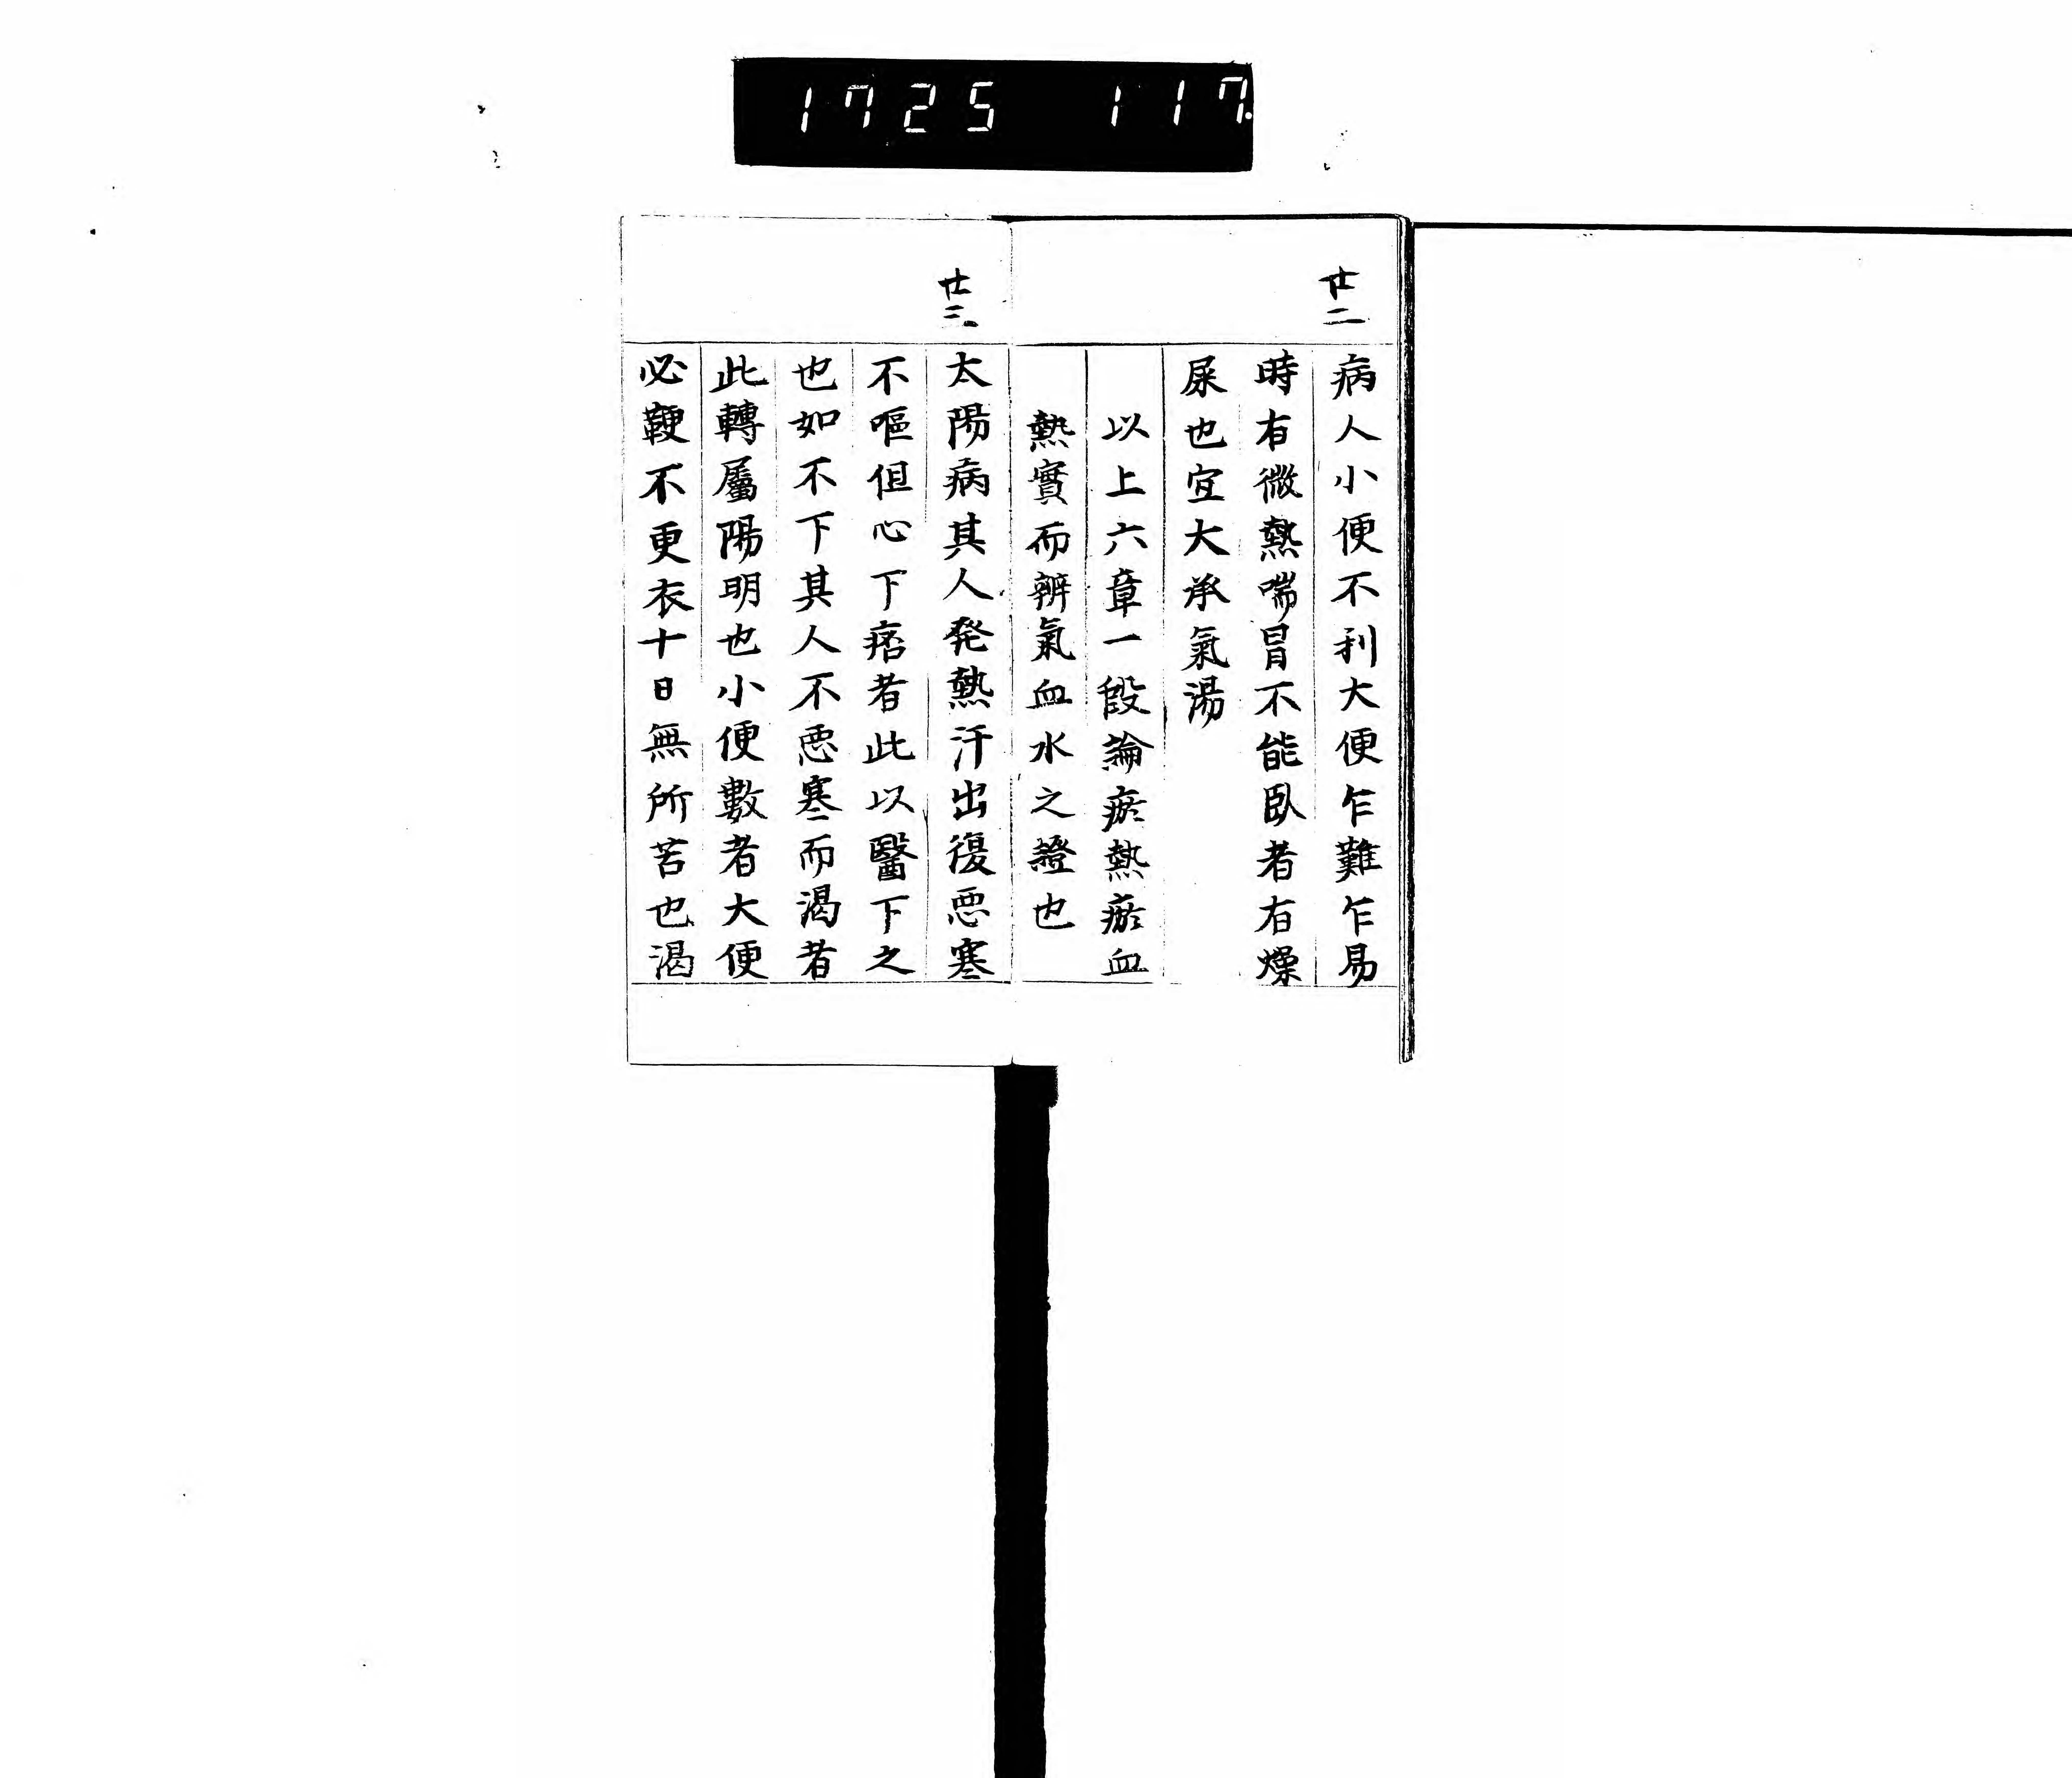 1725 117.
廿二
病人小便不利大便乍難乍易
時有微熱喘冒不能臥者有燥
屎也宜大承氣湯
以上六章一段論瘀熱瘀血
熱實而辨氣血水之證也
廿三
太陽病其人発熱汗出復悪寒
不嘔但心下痞者此以醫下之
也如不下其人不悪寒而渴者
此轉屬陽明也小便數者大便
必鞕不更衣十日無所苦也渴